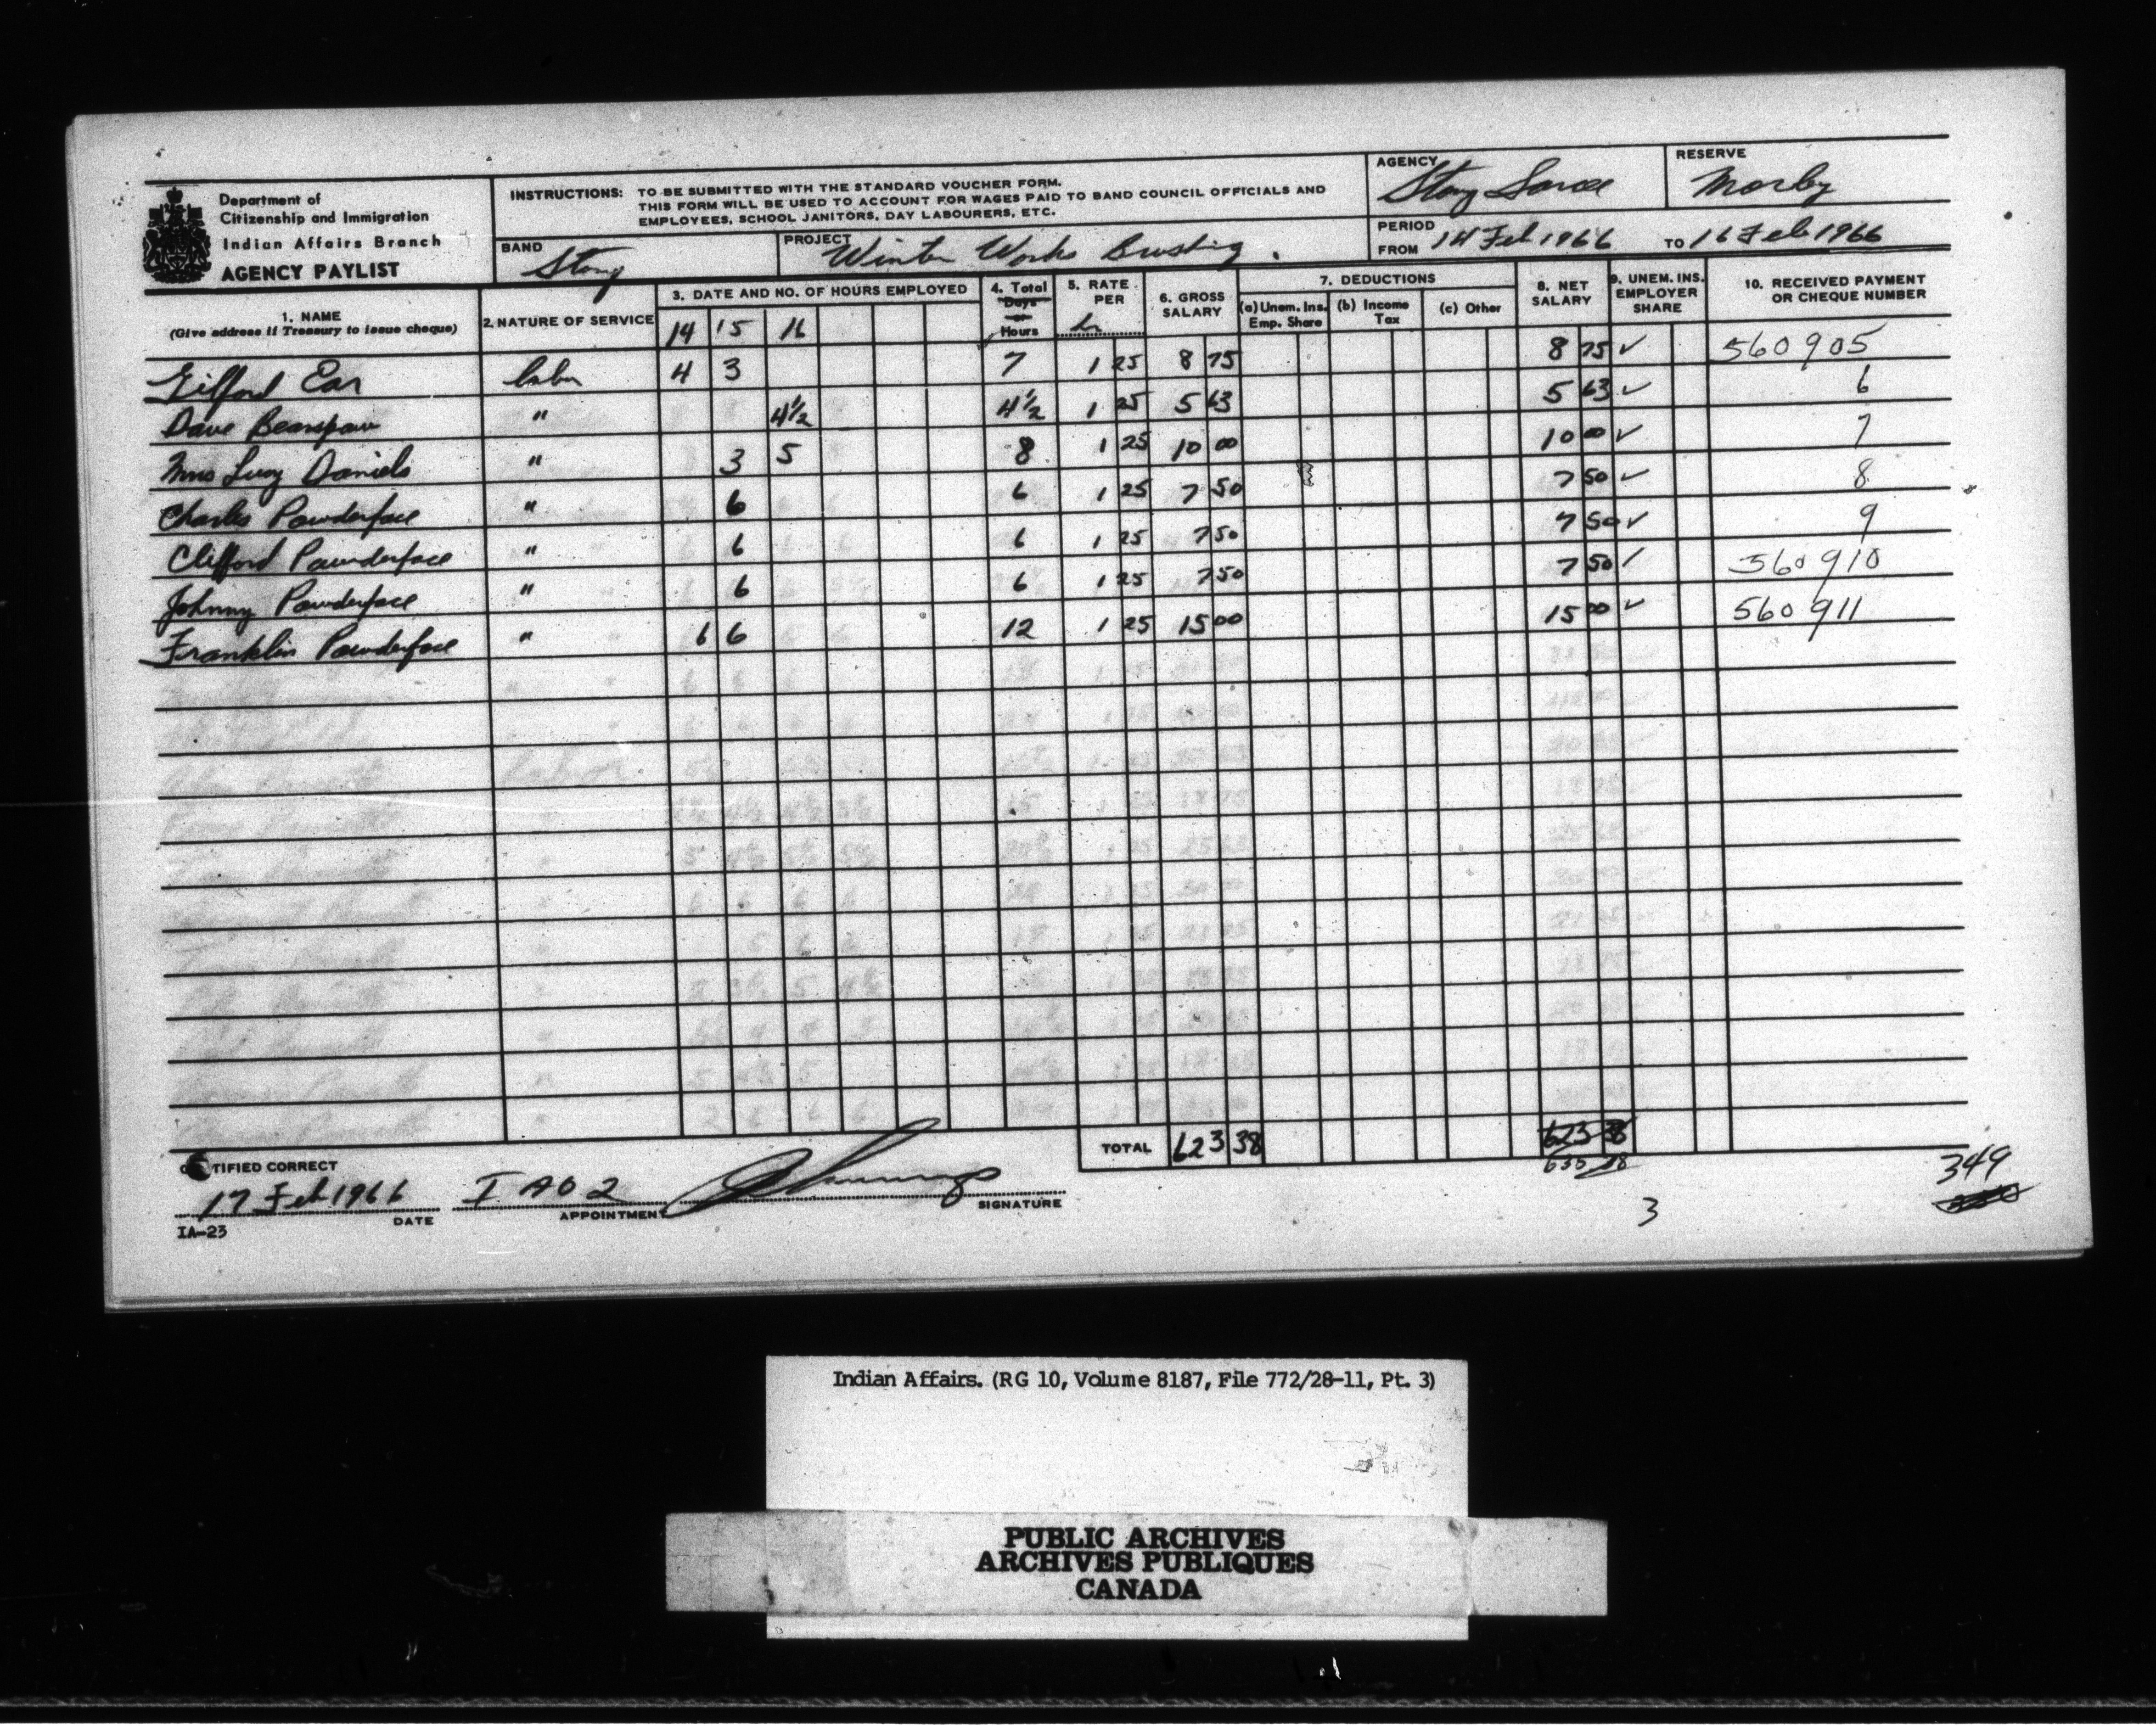 Department of
Citizenship and Immigration
Indian Affairs Branch
AGENCY PAYLIST
INSTRUCTIONS: TO BE SUBMITTED WITH THE STANDARD VOUCHER FORM.
THIS FORM WILL BE USED TO ACCOUNT FOR WAGES PAID TO BAND COUNCIL OFFICIALS AND
EMPLOYEES, SCHOOL JANITORS, DAY LABOURERS, ETC.
AGENCY Stony Sarcee
RESERVE Morley
BAND Stony
PROJECT Winter Works Brushing.
PERIOD
FROM 14 Feb 1966 TO 16 Feb 1966
1. NAME
(Give address if Treasury to issue cheque)
2. NATURE OF SERVICE
3. DATE AND NO. OF HOURS EMPLOYED
14 15 16
4. Total
Days
or
Hours
5. RATE
PER
hr
6. GROSS
SALARY
7. DEDUCTIONS
(a) Unem. Ins.
Emp. Share
(b) Income
Tax
(c) Other
8. NET
SALARY
9. UNEM. INS.
EMPLOYER
SHARE
10. RECEIVED PAYMENT
OR CHEQUE NUMBER
Gilford Ear labor 4 3 7 1 25 8 75 8 75 ✓ 560905
Dave Bearspaw " 4½ 4½ 1 25 5 63 5 63 ✓ 6
Mrs Lucy Daniels " 3 5 8 1 25 10 00 10 00 ✓ 7
Charles Powderface " 6 6 1 25 7 50 7 50 ✓ 8
Clifford Powderface " 6 6 1 25 7 50 7 50 ✓ 9
Johnny Powderface " 6 6 1 25 7 50 7 50 ✓ 560910
Franklin Powderface " 6 6 12 1 25 15 00 15 00 ✓ 560911
TOTAL 623 38 623 38
CERTIFIED CORRECT
17 Feb 1966 IAO 2
DATE APPOINTMENT SIGNATURE
IA-23
3
349
Indian Affairs. (RG 10, Volume 8187, File 772/28-11, Pt. 3)
PUBLIC ARCHIVES
ARCHIVES PUBLIQUES
CANADA